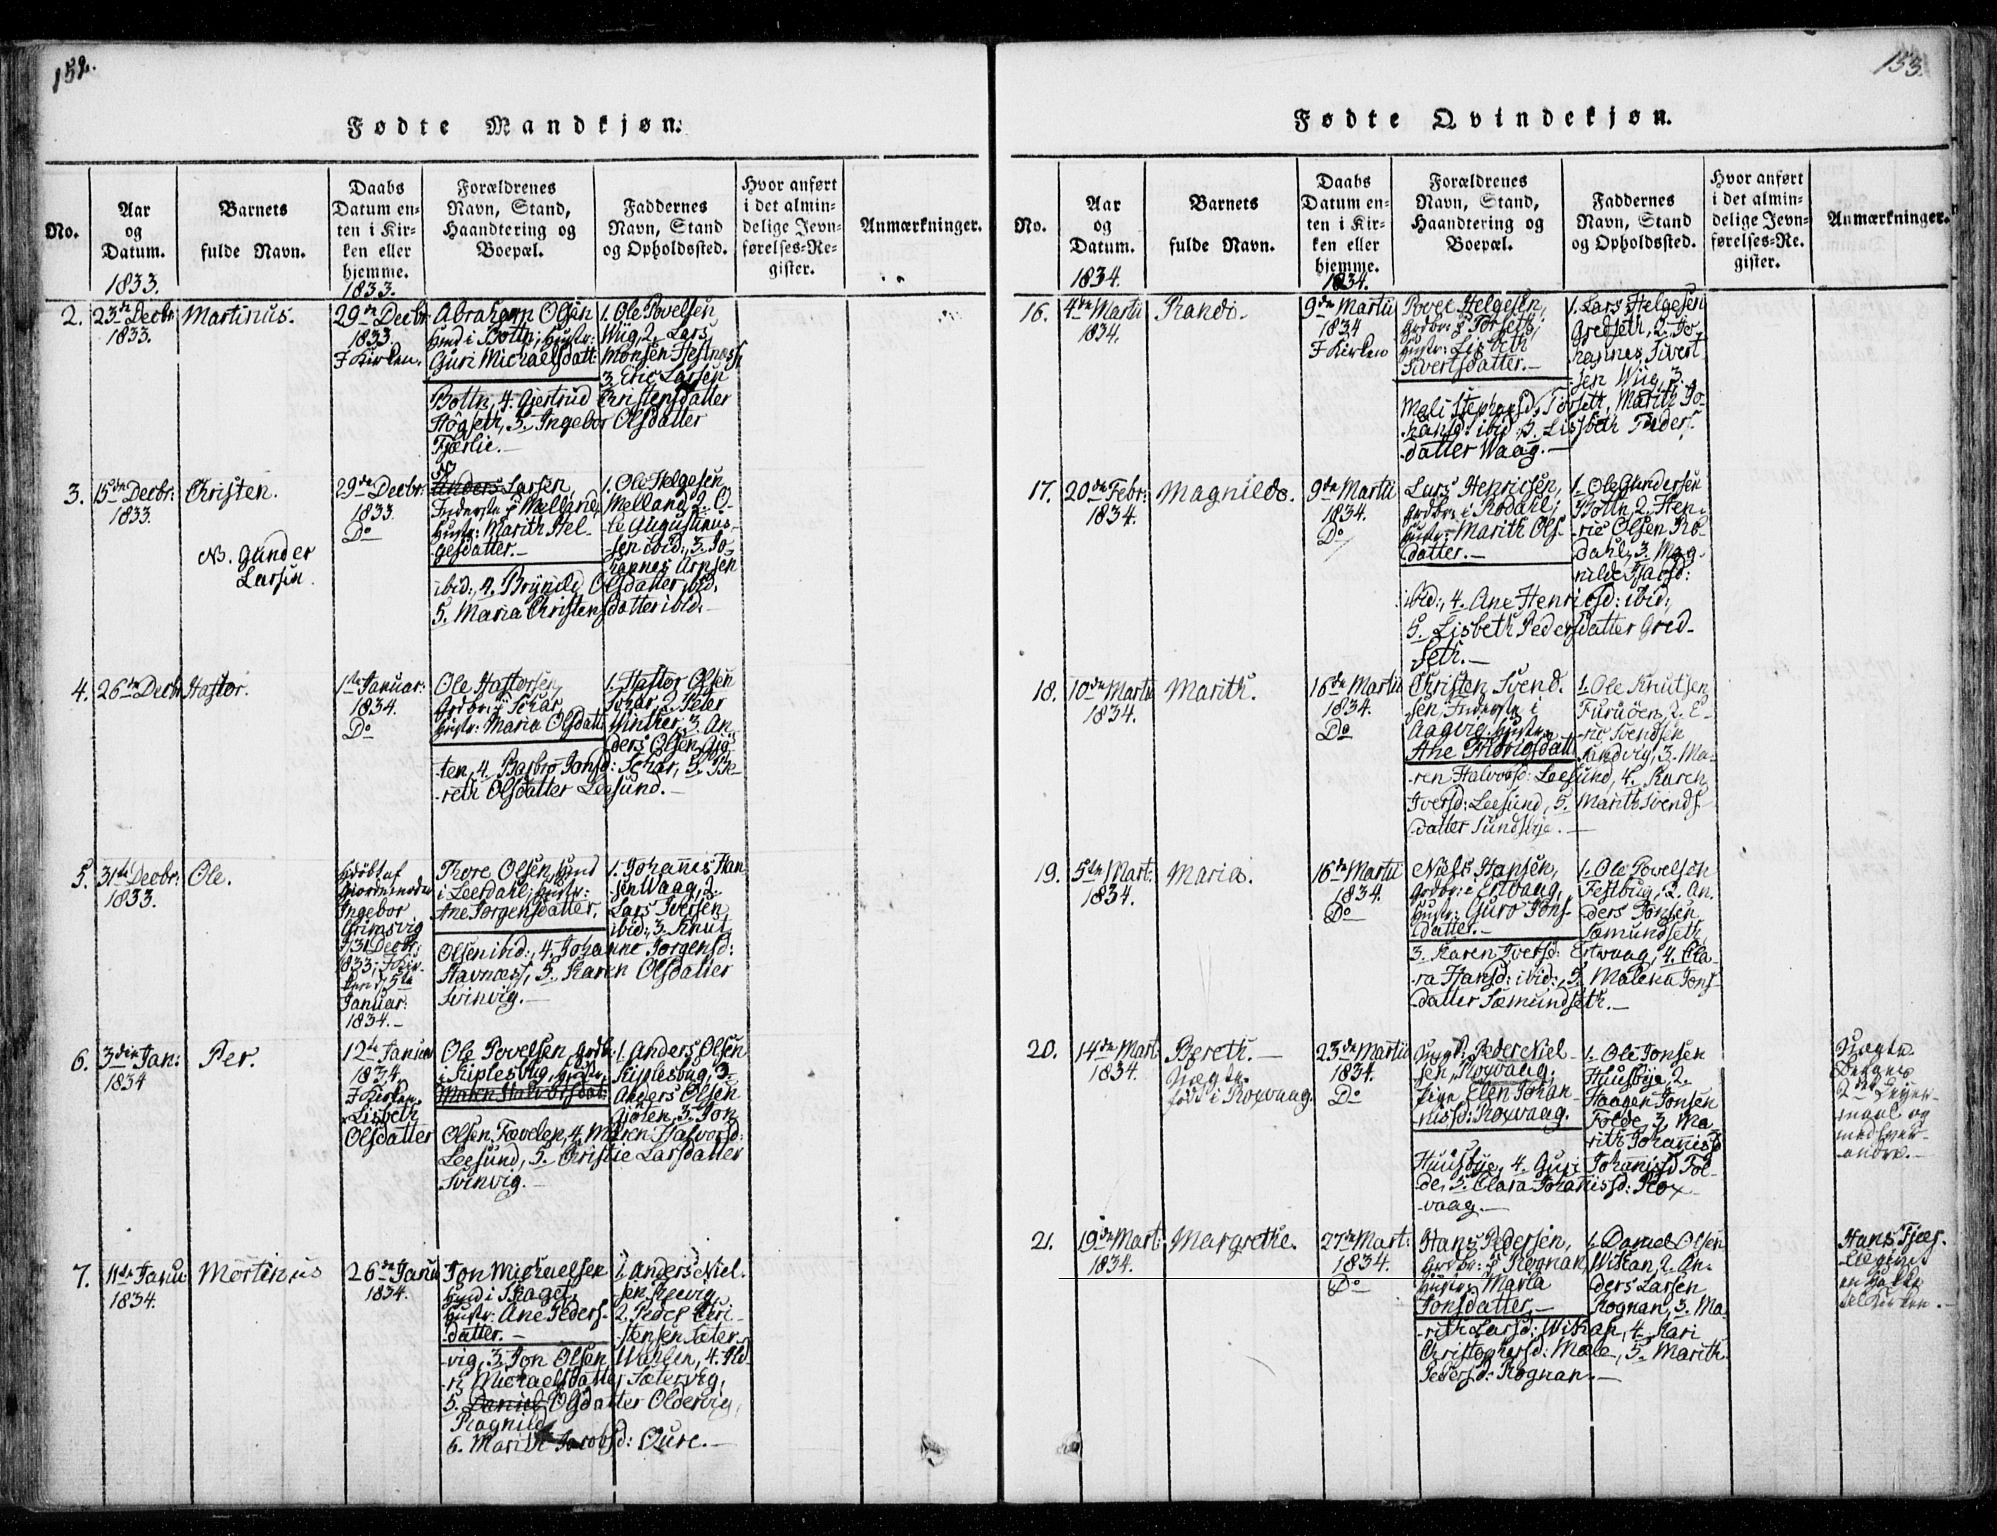 152.
Fødte Mandkjøn.
No.
Aar
og
Datum.
1833.
Barnets
fulde Navn.
Daabs
Datum en-
ten i Kir-
ken eller
hjemme.
1833.
Forældrenes
Navn, Stand,
Haandtering og
Boepæl.
Faddernes
Navn, Stand
og Opholdssted.
Hvor anført
i det almin-
delige Jevn-
førelses-Re-
gister.
Anmærkninger.
2.
23de Decbr:
1833.
Martinus.
29de Decbr:
1833.
I Kirken.
Abraham Olsen
Hmd i Bottn; Hustr:
Guri Michaelsdatt:
1. Ole Povelsen
Wiig, 2. Lars
Monsen Hestnæss,
3. Eric Larsen
Bottn, 4. Gjertrud Christensdatter
Högseth, 5. Ingebor Olsdatter
Fjærlie.—
3.
15de Decbr:
1833.
Christen.
N. Gunder
Larsen.
29de Decbr:
1833.
Do
N
Anders Larsen,
Inderste i Melland,
Hustr: Marith Hel-
gesdatter.—
1. Ole Helgesen
Melland, 2. O-
le Augustinus-
sen ibid:, 3. Jo-
hannes Arnsen
ibid:, 4. Bryndij Olsdatter ibd,
5. Maria Christensdatter ibid.—
4.
26de Decbr
Hastor.
1ste Januar:
1834.
Do
Ole Hastorsen,
Grdbr: i Schar
Hustr: Maria Olsdatt:
1. Hastor Olsen
Schar, 2. Peter
Winther, 3. An-
ders Olsen Giö-
ten, 4. Barbro Jonsd: Schar, 5. Be-
reth Olsdatter Leesund.—
5.
31te Decbr:
1833.
Ole.
hdöbt af
Giordemoder
Ingebor
Grimsvig
d 31 Decbr:
1833; I Kir-
ken d 5te
Januar:
1834.—
Thore Olsen, Hmd
i Leerdahl; Hustr:
Ane Jørgensdatter.
1. Johannes Han-
sen Waag, 2.
Lars Iversen
ibid:, 3. Knut
Olsen ibid:, 4. Johanne Jørgensd:
Stavnæss, 5. Karen Olsdatter
Svinvig.—
6.
3die Jan:
1834
Per.
12te Januar
1834
I Kirken.
Lisbeth
Olsdatter
Ole Povelsen, Grdb:
i Kiplesbug, Hustr:
Maren Halvorsdat:
1. Anders Olsen
Kiplesbug, 2.
Anders Olsen
Giöten, 3. Jon
Olsen Tævelen, 4. Maren Halvorsd:
Leesund, 5. Christie Larsdatter
Svinvig.—
7.
11te Janu
1834.
Mortinus
26de Janua
1834.
Jon Michaelsen
Hmd i Skaget,
Hustr: Ane Peders-
datter.—
1. Anders Niel-
sen Reevig,
2. Peder Chri-
stensen Sæter-
vig, 3. Jon Olsen Wahlen, 4. Ild-
ri Michaelsdatter Sætervig,
5. Daniel Olsdatter Oldervig,
Ragnild
6. Marith Jacobsd: Qure.—
153.
Fødte Qvindekjøn.
No.
Aar
og
Datum.
1834.
Barnets
fulde Navn.
Daabs
Datum en-
ten i Kir-
ken eller
hjemme.
1834.
Forældrenes
Navn, Stand,
Haandtering og
Boepæl.
Faddernes
Navn, Stand
og Opholdssted.
Hvor anført
i det almin-
delige Jevn-
førelses-Re-
gister.
Anmærkninger.
16.
4de Martii
1834.
Randi.
9de Martii
1834
I Kirken
Povel Helgesen,
Grdbr: i Torseth;
Hustr: Lisbeth
Sivertsdatter.—
1. Lars Helgesen
Gredseth, 2. Jo-
hannes Sivert-
sen Wiig, 3.
Mali Stephensd: Torseth, Marith Jo-
hansd: ibid:, 5. Lisbeth Peders-
datter Waag.—
17.
20de Febr:
1834.
Magnilda.
9de Martii
1834.
Do
Lars Henricsen,
Grdbr: i Rodahl;
Hustr: Marith Ols-
datter.—
1. Ole Gundersen
Bottn, 2. Hen-
ric Olsen Ro-
dahl, 3. Mag-
nilde Ifarsd:
ibid:, 4. Ane Henricsd: ibid:,
5. Lisbeth Pedersdatter Gred-
seth.—
18.
10de Martii
1834.
Marith.
16de Martii
1834.
Do
Christen Svend-
sen, Inderste i
Aagvig, Hustr:
Ane Fridrigsdatt:
1. Ole Knutsen
Furuöen, 2. E-
ric Svendsen
Sandvig, 3. Ma-
ren Halvorsd: Leesund, 4. Karen
Iversd: Leesund, 5. Marith Svends-
datter Sundsbye.—
19.
5te Mart:
1834.
Maria.
16de Martii
1834.
Do
Niels Hansen,
Grdbr: i Ertvaag,
Hustr: Guro Jons-
datter.—
1. Ole Povelsen
Festbug, 2. An-
ders Jonsen
Sæmundseth,
3. Karen Iversd: Ertvaag, 4. Cla-
ra Hansd: ibid:, 5. Malena Jons-
datter Sæmundseth.—
20.
14de Mart
1834.
Bereth.—
Uægte
født i Roxvaag.
23de Martii
1834.
Do
Ungk: Peder Niel-
sen, Roxvaag,
Pige Elen Johan-
nisd: Roxvaag.
1. Ole Jonsen
Huusbye, 2.
Haagen Jonsen
Folde, 3. Ma-
rith Johannisd
Huusbye, 4. Guri Johanisd Fol-
de, 5. Clara Johanisd: Rox-
vaag.—
Uægte.
Begges
2det Leyer-
maal og
med hver-
andre.—
21.
19de Mart:
1834.
Margrethe.
27de Mart:
1834.
Do
Hans Pedersen,
Grdbr: i Rognan,
Hustr: Maria
Jonsdatter.—
1. Daniel Olsen
Wikan, 2. An-
ders Larsen
Rognan, 3. Ma-
rith Larsd: Wikan, 4. Kari
Christophersd: Mæle, 5. Marith
Pedersd: Rognan.—